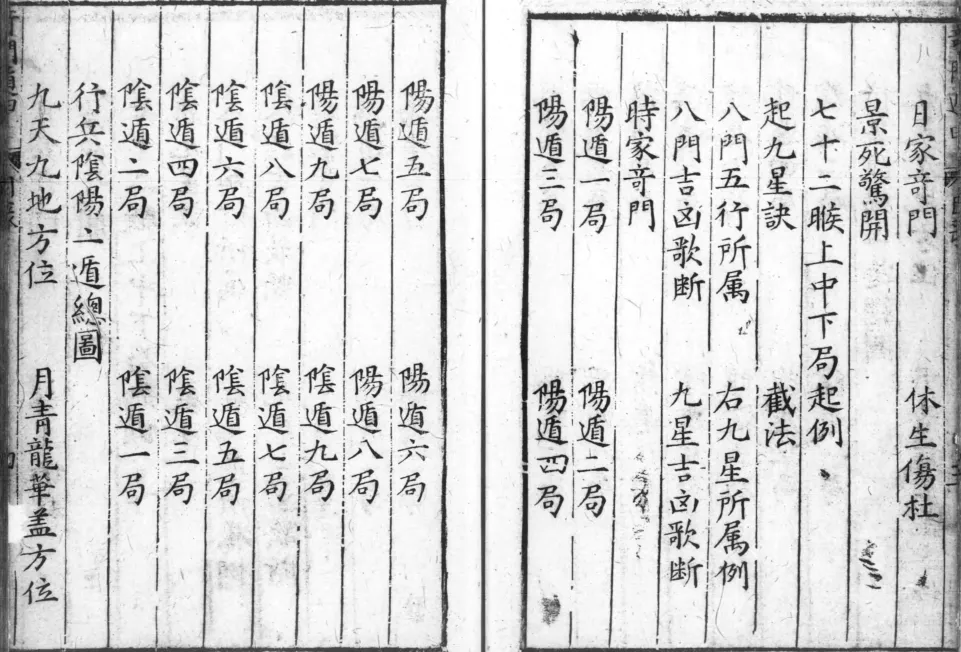 日家竒門 休生傷杜
景死驚開
七十二𠊱上中下局起例
起九星訣 截法
八門五行所属 右九星所属例
八門吉凶歌断 九星吉凶歌断
時家竒門
陽遁一局 陽遁二局
陽遁三局 陽遁四局
陽遁五局 陽遁六局
陽遁七局 陽遁八局
陽遁九局 陰遁九局
陰遁八局 陰遁七局
陰遁六局 陰遁五局
陰遁四局 陰遁三局
陰遁二局 陰遁一局
行兵陰陽二遁總圖
九天九地方位 月青龍華盖方位